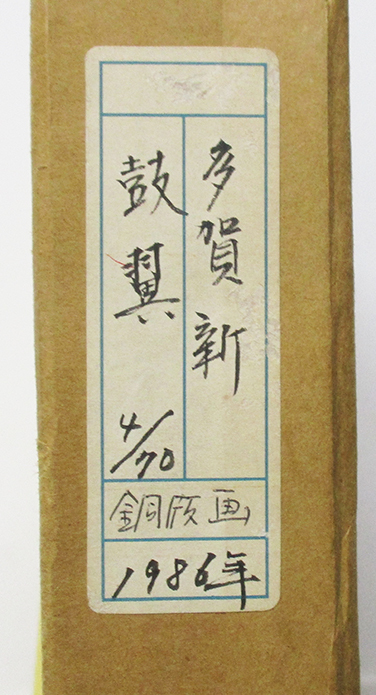 多賀新
鼓翼
4/70
銅版画
1986年